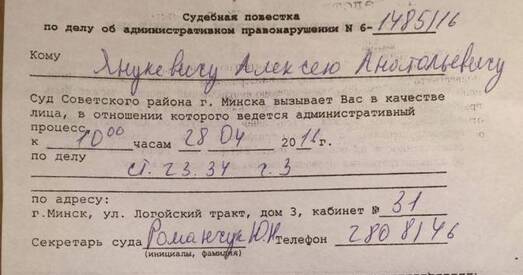 Судебная повестка
по делу об административном правонарушении N 6-1485/16
Кому Янукевичу Алексею Анатольевичу
Суд Советского района г. Минска вызывает Вас в качестве
лица, в отношении которого ведется административный
процесс
к 10 00 часам 28 04 2016г.
по делу ст. 23.34 ч. 3
по адресу:
г.Минск, ул. Логойский тракт, дом 3, кабинет № 31
Секретарь суда Романчук Ю.Н. Телефон 2808146
(инициалы, фамилия)